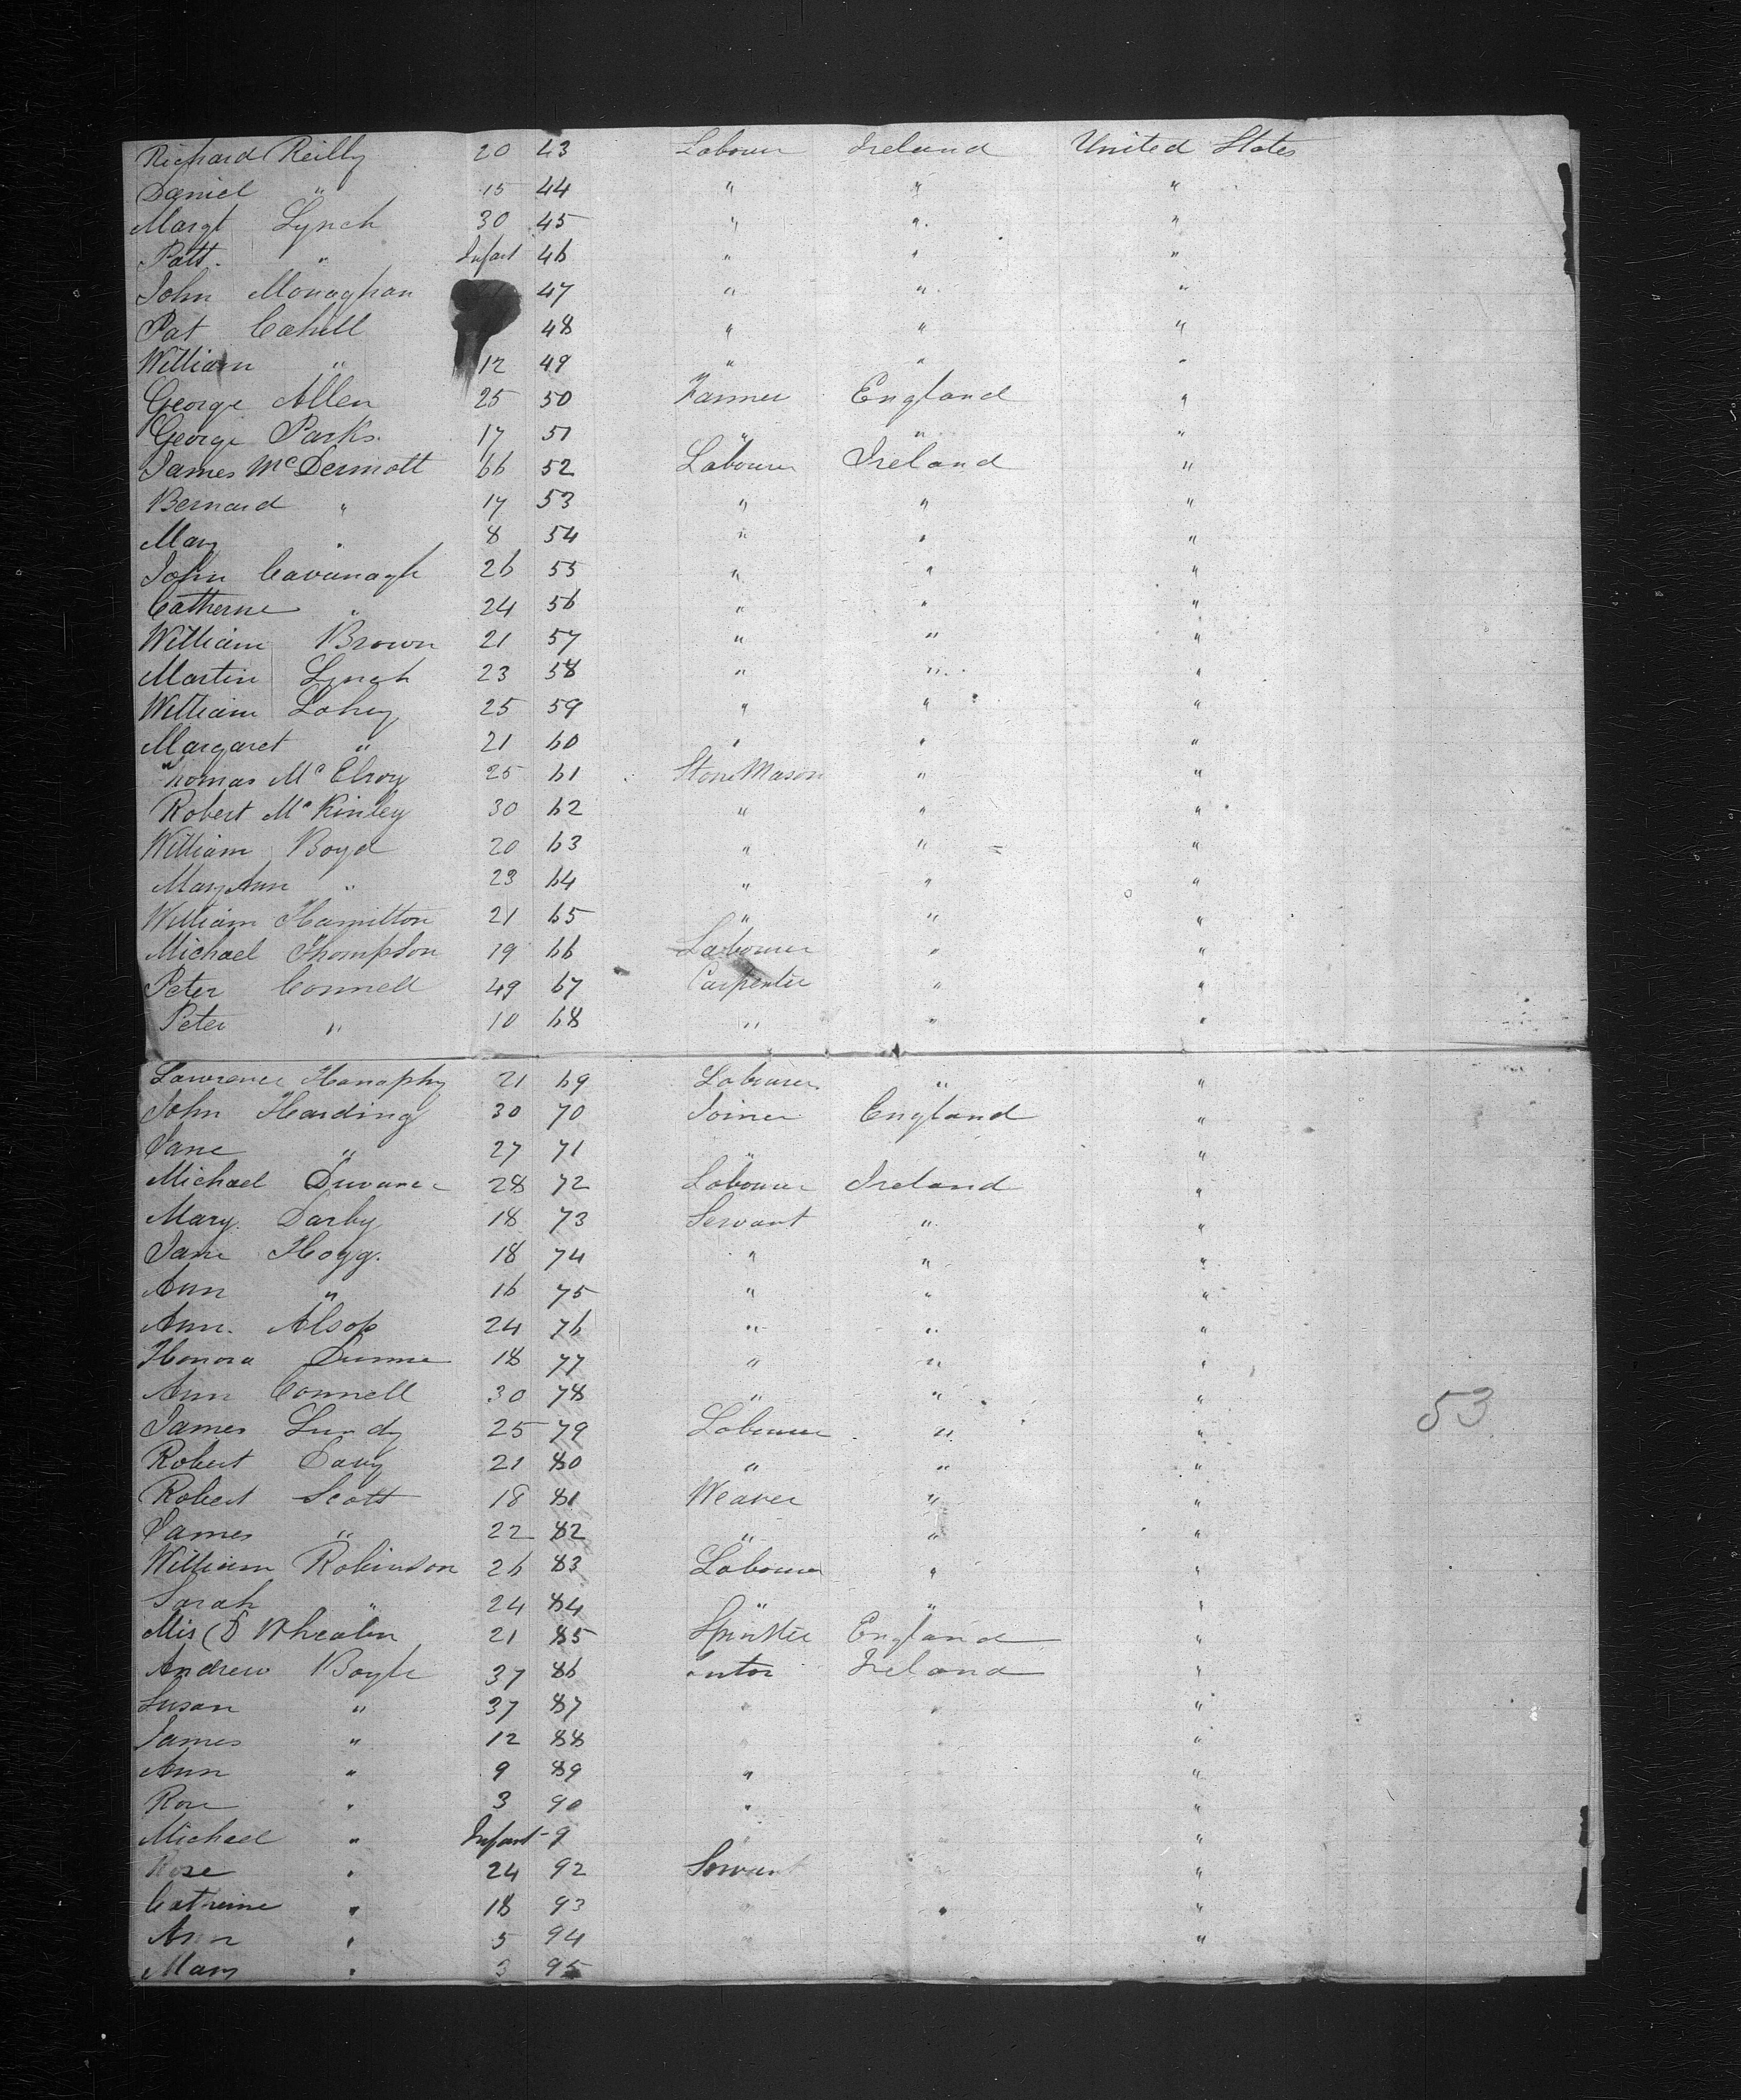 Richard Reilly 20 43 Labourer Ireland United States
Daniel " 15 44 " " "
Margt Lynch 30 45 " " "
Patt. " Infant 46 " " "
John Monaghan 47 " " "
Pat Cahill 48 " " "
William " 12 49 " " "
George Allen 25 50 Farmer England "
George Parks. 17 51 " " "
James McDermott 66 52 Labourer Ireland "
Bernard " 17 53 " " "
Mary " 8 54 " " "
John Cavanagh 26 55 " " "
Catherine " 24 56 " " "
William Brown 21 57 " " "
Martin Lynch 23 58 " " "
William Lahey 25 59 " " "
Margaret " 21 60 " " "
Thomas McElroy 25 61 Stone Mason " "
Robert McKinley 30 62 " " "
William Boyd 20 63 " " "
Mary Ann " 23 64 " " "
William Hamilton 21 65 " " "
Michael Thompson 19 66 Labourer " "
Peter Connell 49 67 Carpenter " "
Peter " 10 68 " " "
Lawrence Hanaphy 21 69 Labourer " "
John Harding 30 70 Joiner England "
Jane " 27 71 " "
Michael 28 72 Labourer Ireland "
Mary Darby 18 73 Servant " "
Jane Hogg. 18 74 " " "
Ann " 16 75 " " "
Ann. Alsop 24 76 " " "
Honora Dunne 18 77 " " "
Ann Connell 30 78 " " "
53
James Lundy 25 79 Labourer " "
Robert 21 80 " " "
Robert Scott 18 81 Weaver " "
James " 22 82 " " "
William Robinson 26 83 Labourer " "
Sarah " 24 84 " " "
Mis 21 85 Spinster England "
Andrew Boyle 37 86 Ireland "
Susan " 37 87 " " "
James " 12 88 "
Ann " 9 89 " "
Rose " 3 90 " "
Michael " Infant 9 "
Rose " 24 92 Servant "
Catherine " 18 93 " "
Ann " 5 94 "
Mary " 3 95